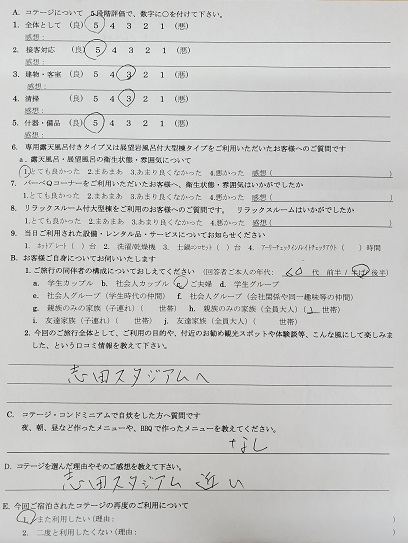 A. コテージについて 5段階評価で、数字に○を付けて下さい。
1. 全体として (良) 5 4 3 2 1 (悪)
感想:
2. 接客対応 (良) 5 4 3 2 1 (悪)
感想:
3. 建物・客室 (良) 5 4 3 2 1 (悪)
感想:
4. 清掃 (良) 5 4 3 2 1 (悪)
感想:
5. 什器・備品 (良) 5 4 3 2 1 (悪)
感想:
6. 専用露天風呂付きタイプ又は展望岩風呂付大型棟タイプをご利用いただいたお客様へのご質問です
a. 露天風呂・展望風呂の衛生状態・雰囲気について
1.とても良かった 2.まあまあ 3.あまり良くなかった 4.悪かった 感想( )
7. バーベQコーナーをご利用いただいたお客様へ、衛生状態・雰囲気はいかがでしたか
1.とても良かった 2.まあまあ 3.あまり良くなかった 4.悪かった 感想( )
8. リラックスルーム付大型棟をご利用のお客様へのご質問です。 リラックスルームはいかがでしたか
1.とても良かった 2.まあまあ 3.あまり良くなかった 4.悪かった 感想( )
9. 当日ご利用された設備・レンタル品・サービスについてお知らせください
1. ホットプレート( )台 2. 洗濯/乾燥機 3. 土鍋のセット( )台 4. アーリーチェックイン/レイトチェックアウト( )時間
B. お客様ご自身についてお伺いいたします
1. ご旅行の同伴者の構成についておしえてください (回答者ご本人の年代: 60 代 前半/半ば/後半)
a. 学生カップル b. 社会人カップル c. ご夫婦 d. 学生グループ
e. 社会人グループ(学生時代の仲間) f. 社会人グループ(会社関係や同一趣味等の仲間)
g. 親族のみの家族(子連れ)( 世帯) h. 親族のみの家族(全員大人)(1 世帯)
i. 友達家族(子連れ)( 世帯) j. 友達家族(全員大人)( 世帯)
2. 今回のご旅行全体として、ご利用の目的や、付近のお勧め観光スポットや体験談等、こんな風にして楽しみました、という口コミ情報を教えて下さい。
志田スタジアムへ
C. コテージ・コンドミニアムで自炊をした方へ質問です
夜、朝、昼など作ったメニューや、BBQで作ったメニューを教えてください。
なし
D. コテージを選んだ理由やそのご感想を教えて下さい。
志田スタジアム 近い
E. 今回ご宿泊されたコテージの再度のご利用について
1. また利用したい(理由: )
2. 二度と利用したくない(理由: )